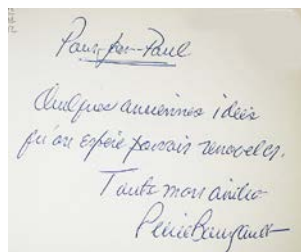 Pour Jean-Paul
Quelques anciennes idées
qu'on espère pouvoir renouveler.
Toute mon amitié
Pierre Bourgault